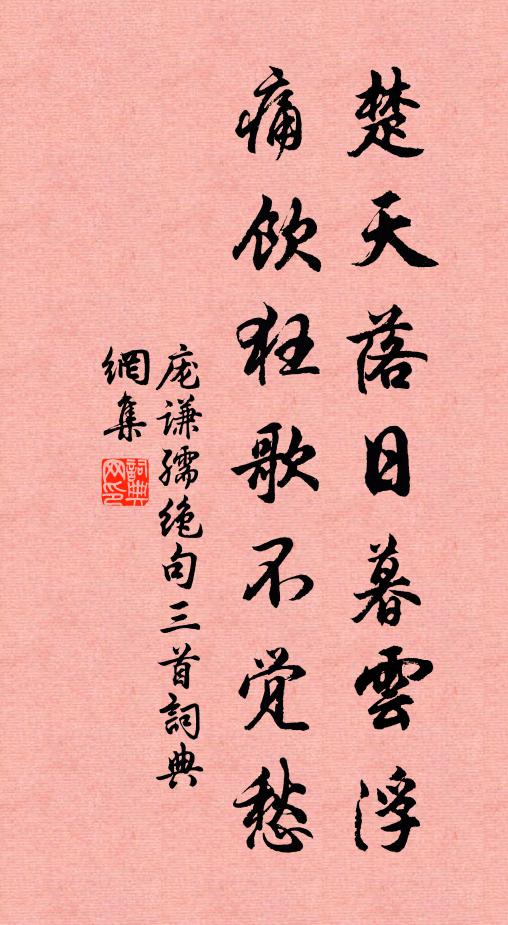 楚天落日暮雲浮
痛飲狂歌不觉愁
庞谦孺绝句三首詞典
網集
詞典网印